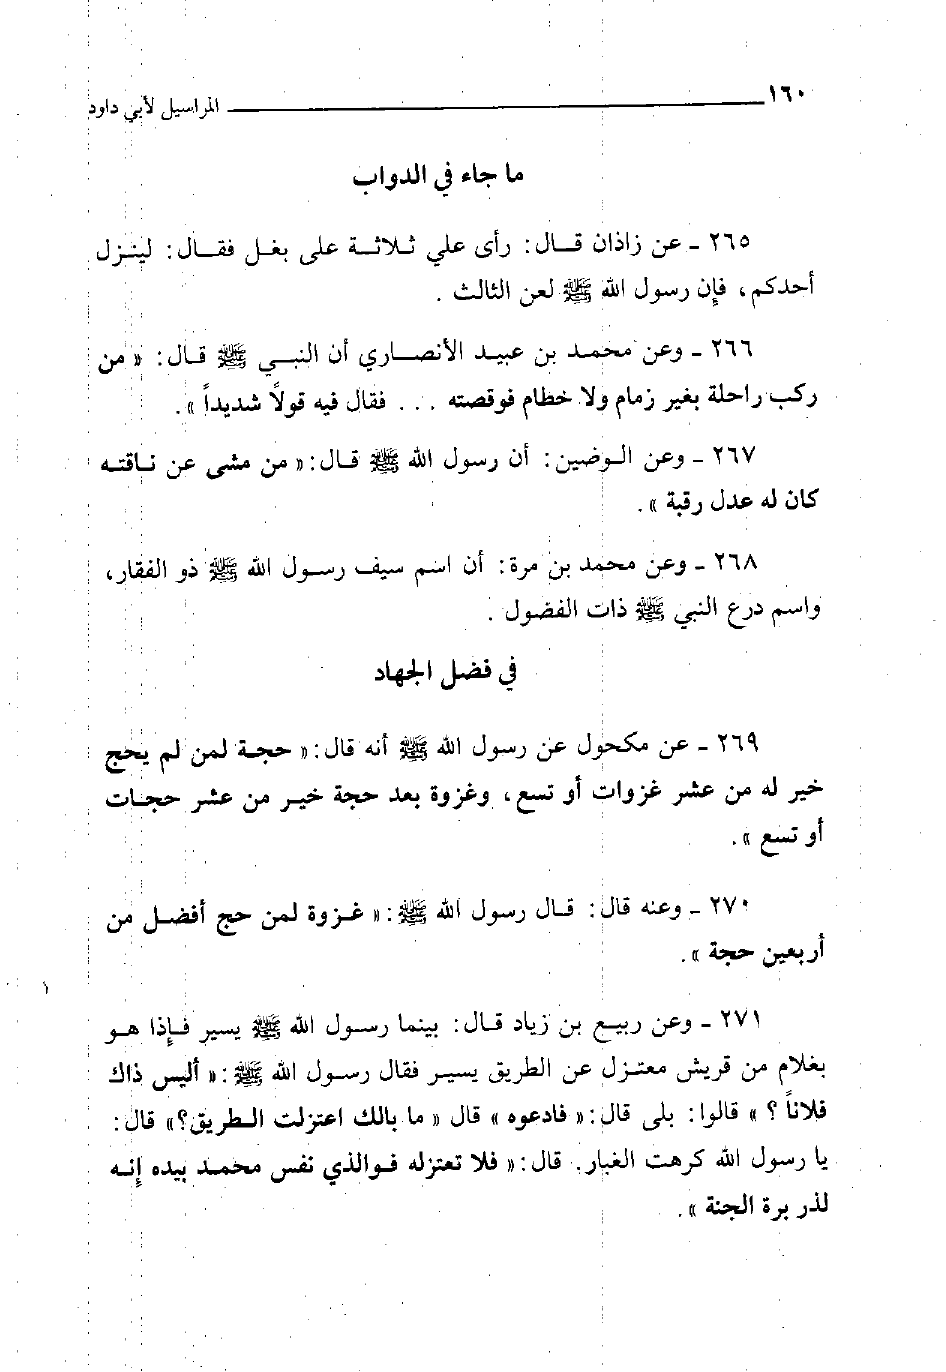 ١٦٠ المراسيل لأبي داود
ما جاء في الدواب
٢٦٥ ـ عن زاذان قال: رأى علي ثلاثة على بغل فقال: لينزل
أحدكم، فإن رسول الله ﷺ لعن الثالث .
٢٦٦ ـ وعن محمد بن عبيد الأنصاري أن النبي ﷺ قال: « من
ركب راحلة بغير زمام ولا خطام فوقصته ... فقال فيه قولاً شديداً ».
٢٦٧ ـ وعن الوضين: أن رسول الله ﷺ قال: « من مشى عن ناقته
كان له عدل رقبة ».
٢٦٨ ـ وعن محمد بن مرة: أن اسم سيف رسول الله ﷺ ذو الفقار،
واسم درع النبي ﷺ ذات الفضول .
في فضل الجهاد
٢٦٩ ـ عن مكحول عن رسول الله ﷺ أنه قال: « حجة لمن لم يحج
خير له من عشر غزوات أو تسع، وغزوة بعد حجة خير من عشر حجات
أو تسع ».
٢٧٠ ـ وعنه قال: قال رسول الله ﷺ: « غزوة لمن حج أفضل من
أربعين حجة ».
٢٧١ ـ وعن ربيع بن زياد قال: بينما رسول الله ﷺ يسير فإذا هو
بغلام من قريش معتزل عن الطريق يسير فقال رسول الله ﷺ: « أليس ذاك
فلاناً ؟ » قالوا: بلى قال: « فادعوه » قال « ما بالك اعتزلت الطريق؟» قال:
يا رسول الله كرهت الغبار. قال: « فلا تعتزله فوالذي نفس محمد بيده إنه
لذر برة الجنة ».